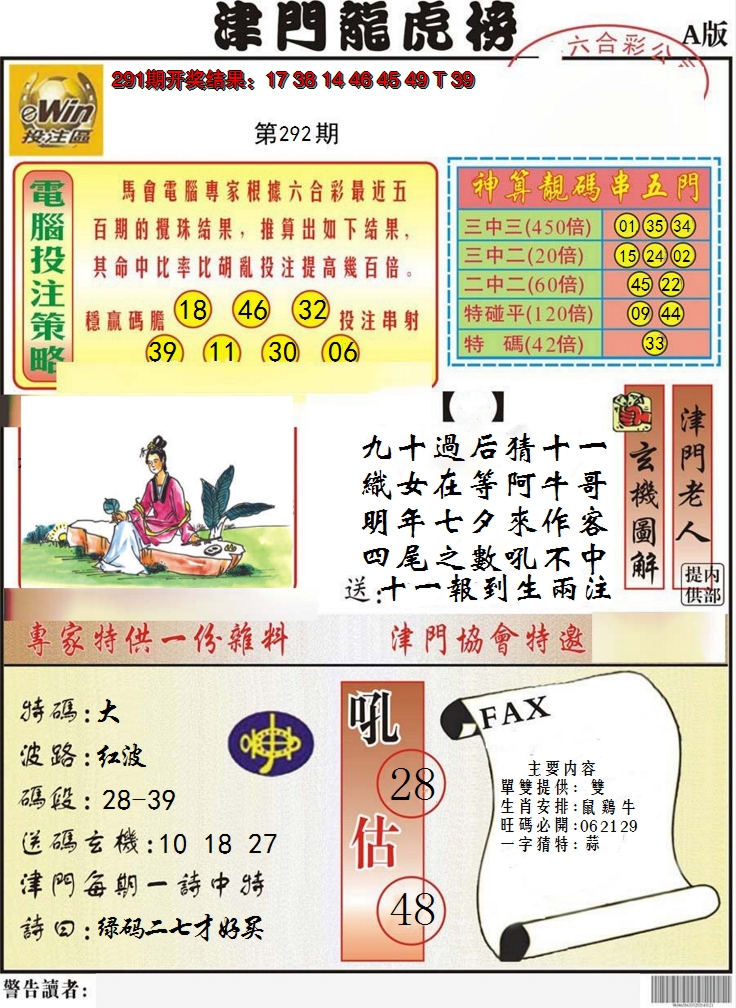 津門龍虎榜
A版
六合彩公
eWin
投注區
291期开奖结果：17 38 14 46 45 49 T 39
第292期
電腦投注策略
馬會電腦專家根據六合彩最近五
百期的攪珠结果，推算出如下结果，
其命中比率比胡亂投注提高幾百倍。
穩贏碼膽 18 46 32 投注串射
39 11 30 06
神算靚碼串五門
三中三(450倍) 01 35 34
三中二(20倍) 15 24 02
二中二(60倍) 45 22
特碰平(120倍) 09 44
特碼(42倍) 33
【 】
九十過后猜十一
織女在等阿牛哥
明年七夕來作客
四尾之數吼不中
送：十一報到生兩注
玄機圖解
津門老人
提供
内部
專家特供一份雜料
津門協會特邀
特碼：大
波路：红波
碼段：28-39
送碼玄機：10 18 27
津門每期一詩中特
詩曰：绿码二七才好买
吼
28
估
48
FAX
主要内容
單雙提供：雙
生肖安排：鼠鷄牛
旺碼必開：062129
一字猜特：蒜
警告讀者：